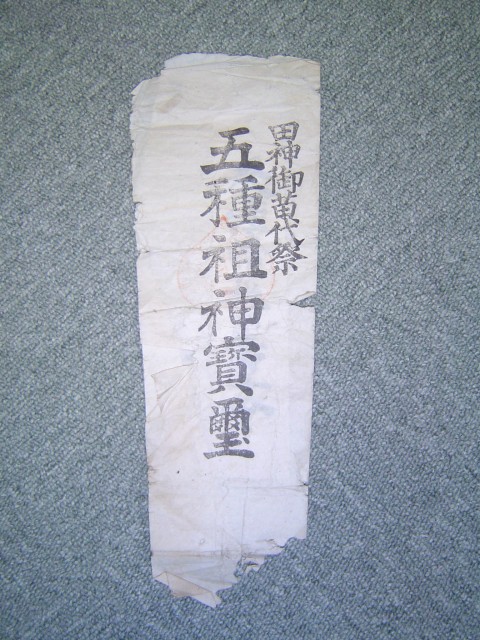 田神御苗代祭
五種祖神寶璽